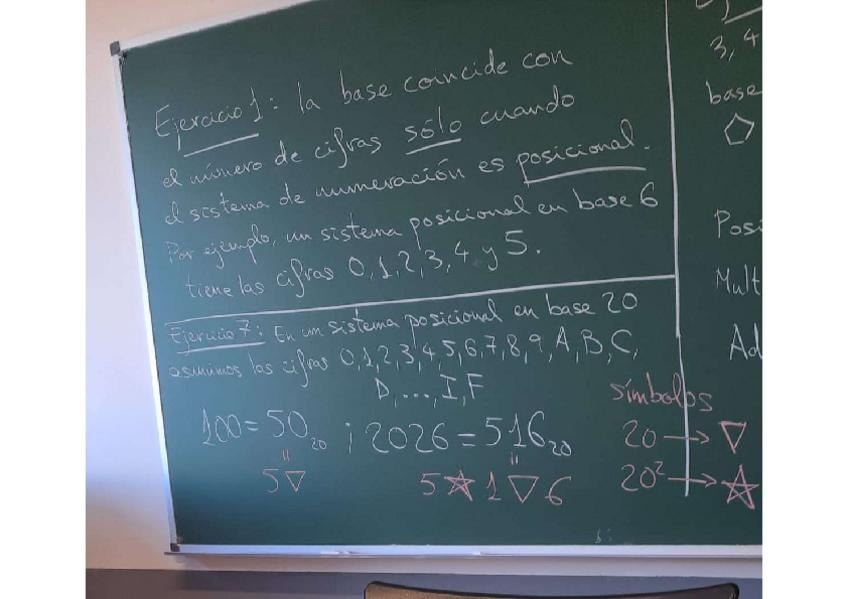 Ejercicio 1: la base coincide con
el número de cifras sólo cuando
el sistema de numeración es posicional.
Por ejemplo, un sistema posicional en base 6
tiene las cifras 0, 1, 2, 3, 4 y 5.
Ejercicio 7: En un sistema posicional en base 20
asumimos las cifras 0, 1, 2, 3, 4, 5, 6, 7, 8, 9, A, B, C,
D, ..., I, F
100 = 50₂₀ ; 2026 = 516₂₀
=
=
5▽
5☆1▽6
símbolos
20 → ▽
20² → ☆
3, 4
base
⬠
Posi
Mult
Ad